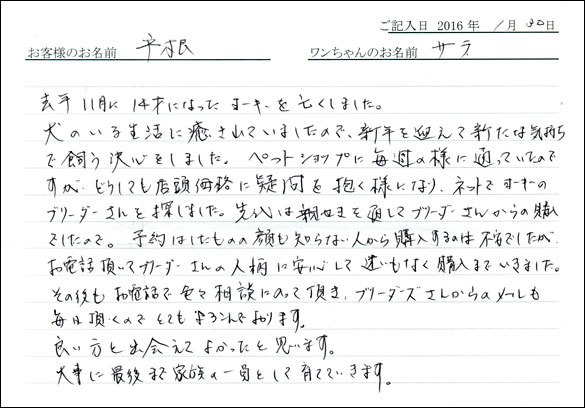 ご記入日 2016 年 1月 30日
お客様のお名前 平根 ワンちゃんのお名前 サラ
去年11月に14才になったヨーキーを亡くしました。
犬のいる生活に癒されていましたので、新年を迎えて新たな気持ち
で飼う決心をしました。ペットショップに毎週の様に通っていたので
すが、どうしても店頭価格に疑問を抱く様になり、ネットでヨーキーの
ブリーダーさんを探しました。先代は親せきを通してブリーダーさんからの購入
でしたので。予約はしたものの顔も知らない人から購入するのは不安でしたが
お電話頂いてブリーダーさんの人柄に安心して迷いもなく購入までいきました。
その後もお電話で色々相談にのって頂き、ブリーダーズさんからのメールも
毎日頂くのでとてもよろこんでおります。
良い方と出会えてよかったと思います。
大事に最後まで家族の一員として育てていきます。